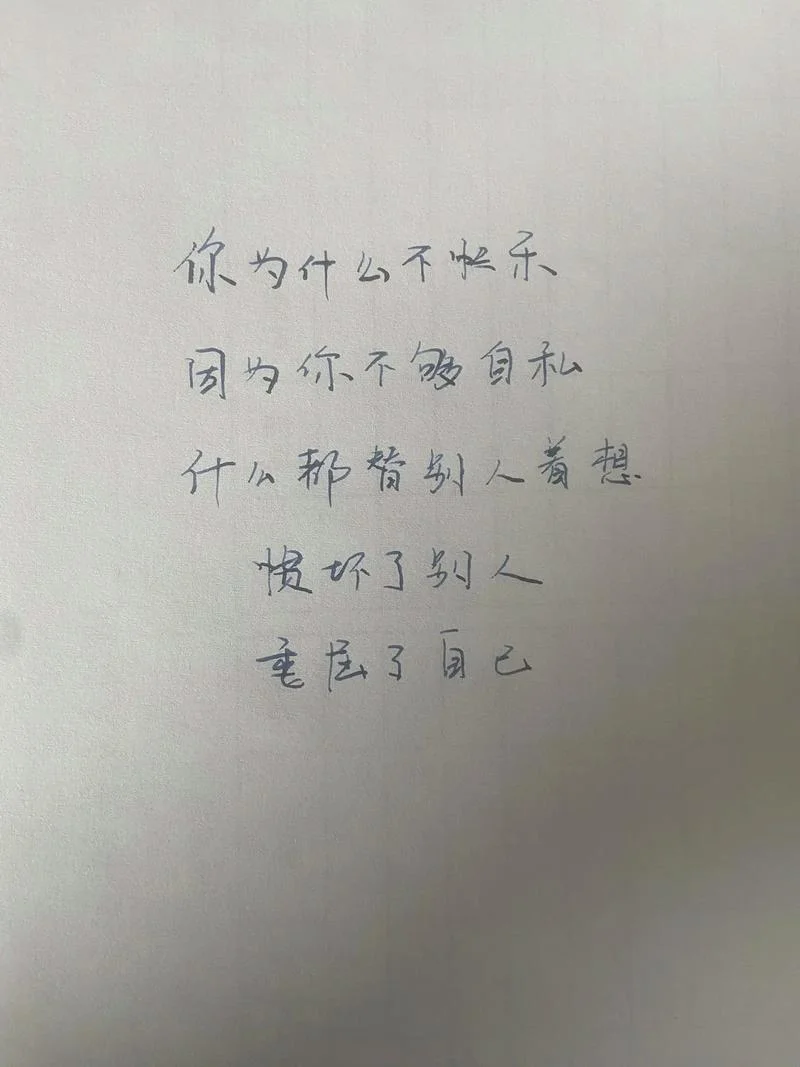 你为什么不快乐
因为你不够自私
什么都替别人着想
惯坏了别人
委屈了自己